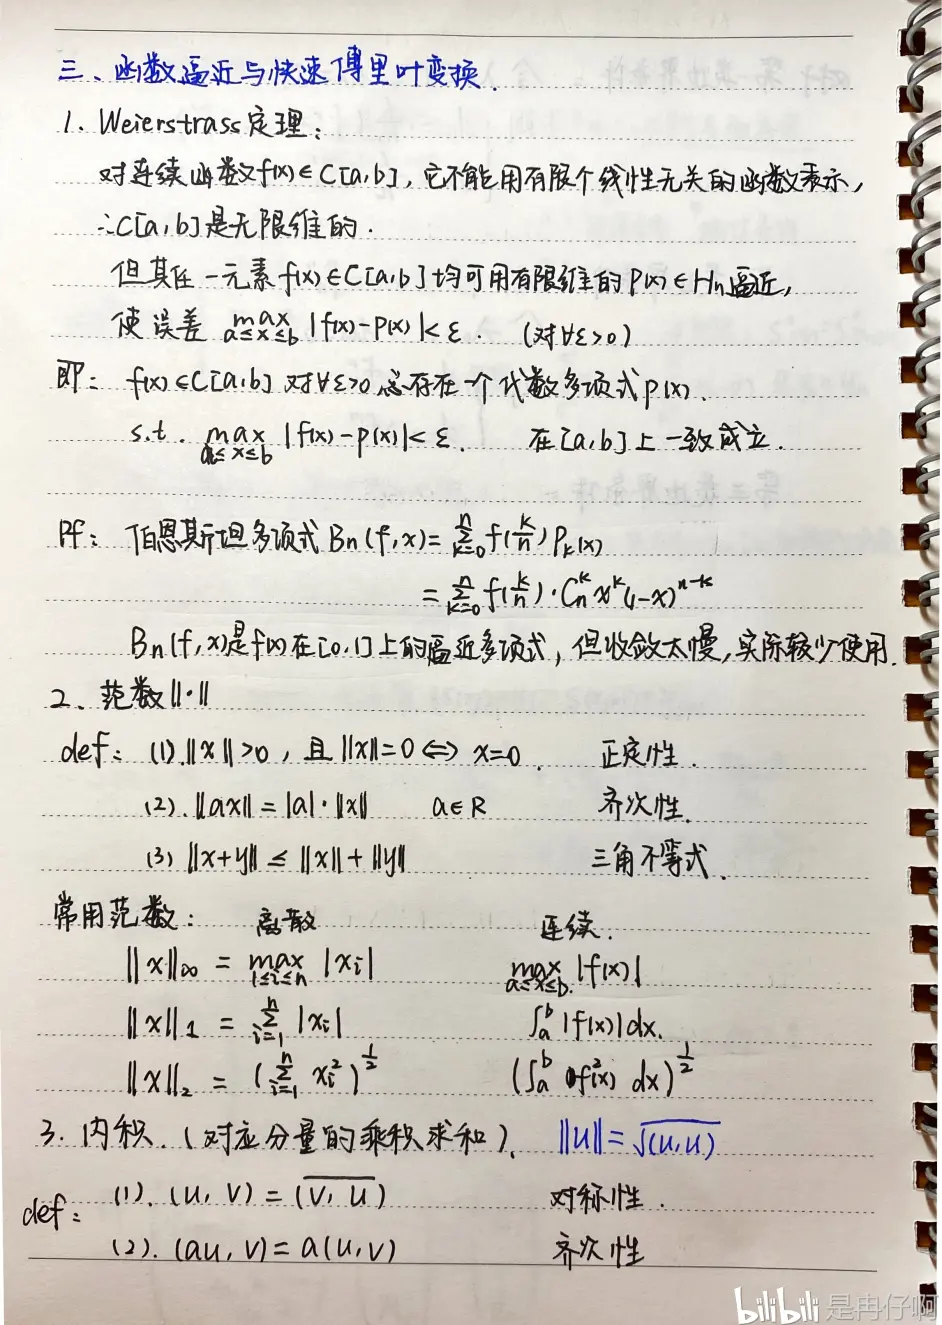 三、函数逼近与快速傅里叶变换.
1. Weierstrass定理:
对连续函数f(x)∈C[a,b],它不能用有限个线性无关的函数表示,
∴C[a,b]是无限维的.
但其任一元素f(x)∈C[a,b]均可用有限维的p(x)∈Hn逼近,
使误差 max a≤x≤b |f(x)-p(x)|<ε. (对∀ε>0)
即: f(x)∈C[a,b]对∀ε>0,总存在一个代数多项式p(x).
s.t. max a≤x≤b |f(x)-p(x)|<ε. 在[a,b]上一致成立.
Pf: 伯恩斯坦多项式Bn(f,x)= Σ_{k=0}^{n} f(k/n) P_k(x)
= Σ_{k=0}^{n} f(k/n)·C_n^k x^k (1-x)^{n-k}
Bn(f,x)是f(x)在[0,1]上的逼近多项式,但收敛太慢,实际较少使用.
2、范数‖·‖
def: (1).‖x‖>0,且‖x‖=0⇔x=0. 正定性.
(2).‖ax‖=|a|·‖x‖ a∈R 齐次性.
(3) ‖x+y‖≤‖x‖+‖y‖ 三角不等式.
常用范数: 离散 连续.
‖x‖∞ = max 1≤i≤n |xi| max a≤x≤b. |f(x)|
‖x‖_1 = Σ_{i=1}^{n} |xi| ∫_a^b |f(x)|dx.
‖x‖_2 = (Σ_{i=1}^{n} xi^2)^{1/2} (∫_a^b f^2(x) dx)^{1/2}
3. 内积.(对应分量的乘积求和). ‖u‖=√(u,u)
def: (1). (u,v)=\overline{(v,u)} 对称性.
(2). (au,v)=a(u,v) 齐次性
bilibili 是冉仔啊